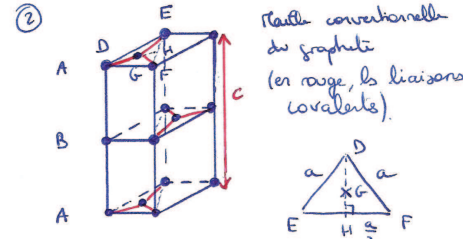 ②
E
D
H
A
G
F
B
C
A
Maille conventionnelle
du graphite
(en rouge, les liaisons
covalentes).
D
a
a
G
E
F
H
a